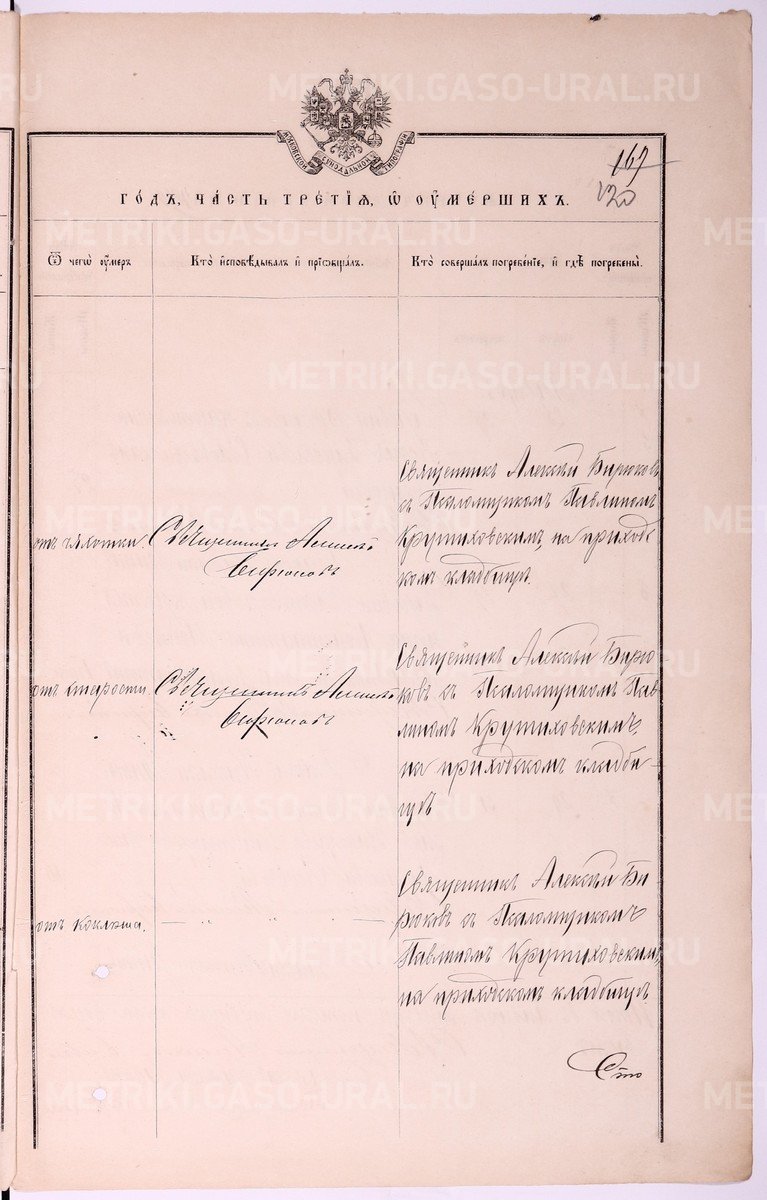 METRIKI.GASO-URAL.RU
МОСКОВСКОЙ СУНОДАЛЬНОЙ ТИПОГРАФІИ
167
120
ГОДЪ, ЧАСТЬ ТРЕТІЯ, Ѡ ОУМЕРШИХЪ.
Ѿ чегѡ оумеръ
Кто исповѣдывалъ и пріѡбщалъ.
Кто совершалъ погребеніе, и гдѣ погребены.
отъ чахотки.
Священникъ Алексѣй
Бирюковъ
Священникъ Алексѣй Бирюковъ
съ Псаломщикомъ Павлиномъ
Крутиховскимъ, на приходс
комъ кладбищѣ.
отъ старости.
Священникъ Алексѣй
Бирюковъ
Священникъ Алексѣй Бирю
ковъ съ Псаломщикомъ Пав
линомъ Крутиховскимъ,
на приходскомъ кладби-
щѣ
отъ коклюша.
— " " —
Священникъ Алексѣй Би
рюковъ съ Псаломщикомъ
Павлиномъ Крутиховскимъ,
на приходскомъ кладбищѣ
Сто